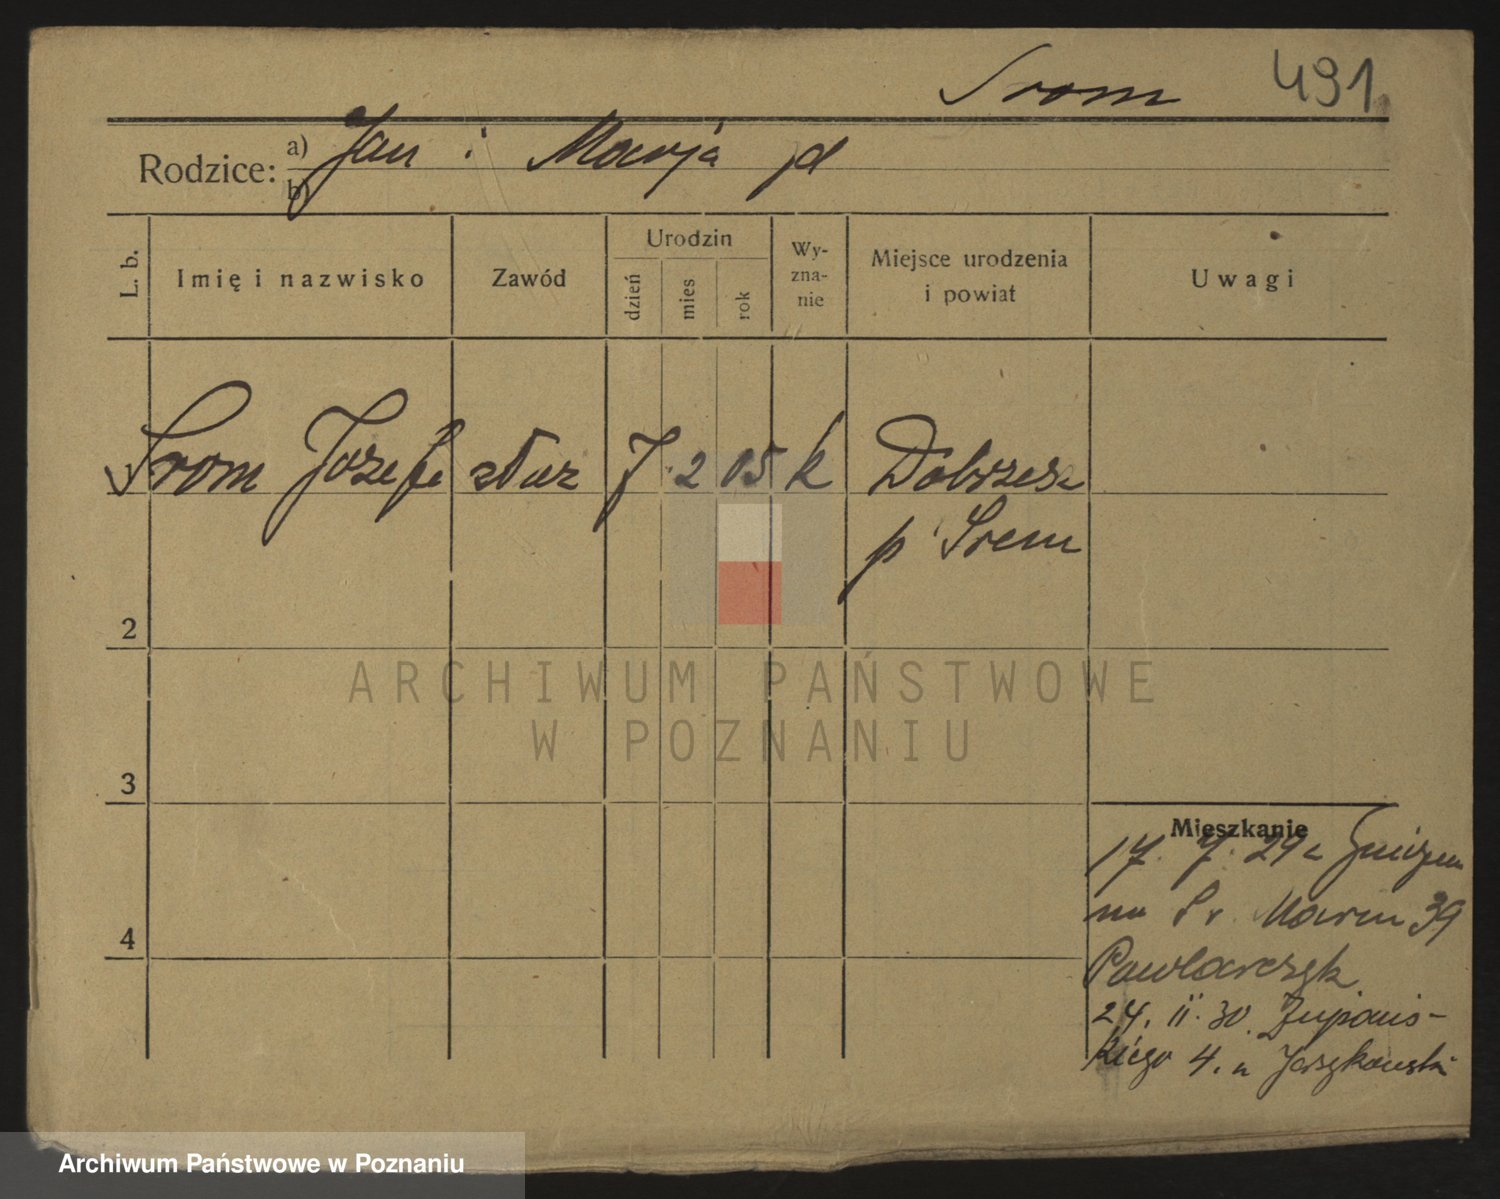 Srom 491
Rodzice: a) Jan i Marja
b)
L. b. Imię i nazwisko Zawód Urodzin dzień mies rok Wy-zna-nie Miejsce urodzenia i powiat Uwagi
Srom Józefa służ 7 2 05 k
p Śrem
2
ARCHIWUM PAŃSTWOWE
W POZNANIU
3
Mieszkanie
17. 7. 29 z
na Św. Marcin 39
Pawlarczyk
24. II. 30. Żupańs-
kiego 4. u Jaszkowski
4
Archiwum Państwowe w Poznaniu